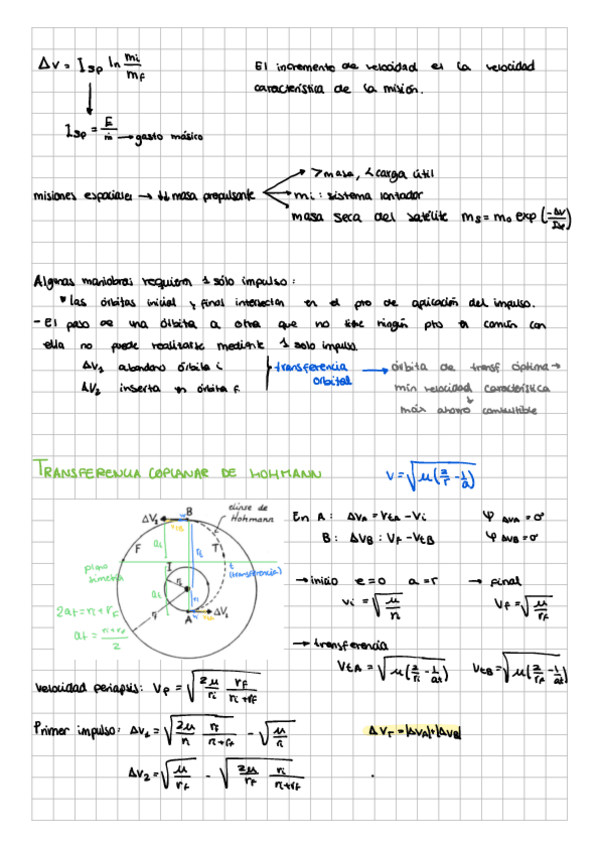 Δv = Isp ln mi/mf
El incremento de velocidad es la velocidad
característica de la misión.
Isp = E/ṁ → gasto másico
misiones espaciales → ↓↓ masa propulsante
> masa, < carga útil
mi : sistema lanzador
masa seca del satélite ms = mo exp (-Δv/Isp)
Algunas maniobras requieren 1 sólo impulso :
las órbitas inicial y final intersectan en el pto de aplicación del impulso.
- El paso de una órbita a otra que no tiene ningún pto en común con
ella no puede realizarse mediante 1 solo impulso
Δv1 abandono órbita i
Δv2 inserta en órbita f.
transferencia
orbital
→ órbita de transf óptima →
mín velocidad característica
más ahorro combustible
TRANSFERENCIA COPLANAR DE HOHMANN
v = √μ(2/r - 1/a)
ΔV2
B
elipse de
Hohmann
F
T
I
t
(transferencia)
plano
simetría
at
at
A
ΔV1
2at = ri + rF
at = ri+rF/2
En A : ΔvA = VtA - Vi
φ ΔvA = 0°
B : ΔvB : VF - VtB
φ ΔvB = 0°
→ inicio e = 0 a = r
→ final
Vi = √μ/ri
VF = √μ/rF
→ transferencia
VtA = √μ(2/ri - 1/at)
VtB = √μ(2/rF - 1/at)
Velocidad periapsis: Vp = √2μ/ri rF/ri+rF
Primer impulso: Δv1 = √2μ/ri rf/ri+rf - √μ/ri
ΔvT = |ΔvA|+|ΔvB|
Δv2 = √μ/rF - √2μ/rF ri/ri+rF